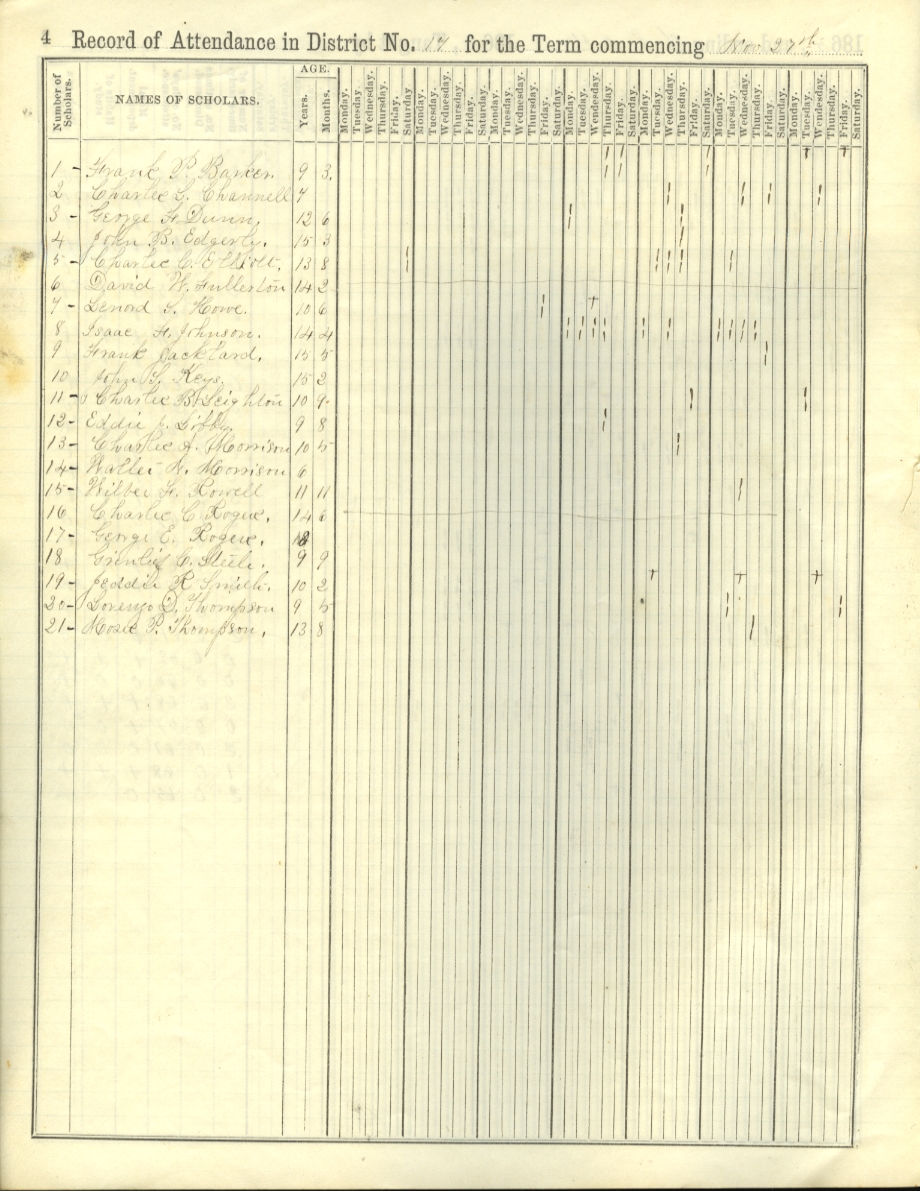 4 Record of Attendance in District No. 14 for the Term commencing Nov 27th
Number of Scholars. NAMES OF SCHOLARS. AGE. Years. Months. Monday. Tuesday. Wednesday. Thursday. Friday. Saturday. Monday. Tuesday. Wednesday. Thursday. Friday. Saturday. Monday. Tuesday. Wednesday. Thursday. Friday. Saturday. Monday. Tuesday. Wednesday. Thursday. Friday. Saturday. Monday. Tuesday. Wednesday. Thursday. Friday. Saturday. Monday. Tuesday. Wednesday. Thursday. Friday. Saturday. Monday. Tuesday. Wednesday. Thursday. Friday. Saturday.
1 - Frank P. Barker. 9 3.
2 Charlie G. Channell 7
3 - George F. Dunn, 12 6
4 John B. Edgerly. 15 3
5 - Charlie C. Elliott. 13 8
6 David W. Fullerton 14 2
7 - Lenord S. Howe. 10 6
8 Isaac F. Johnson. 14 4
9 Frank Jacklard. 15 5
10 John S. Keys. 15 2
11 - Charlie B. Leighton 10 9
12 - Eddie J. Libby. 9 8
13 - Charlie A. Morrison 10 5
14 - Walter N. Morrison 6
15 - Wilber F. Rowell 11 11
16 Charlie C. Rogers. 14 6
17 - George E. Rogers.
18 C. Steele. 9 9
19 - Freddie R. Smith. 10 2
20 - Lorenzo D. Thompson 9 5
21 - Moses P. Thompson. 13 8